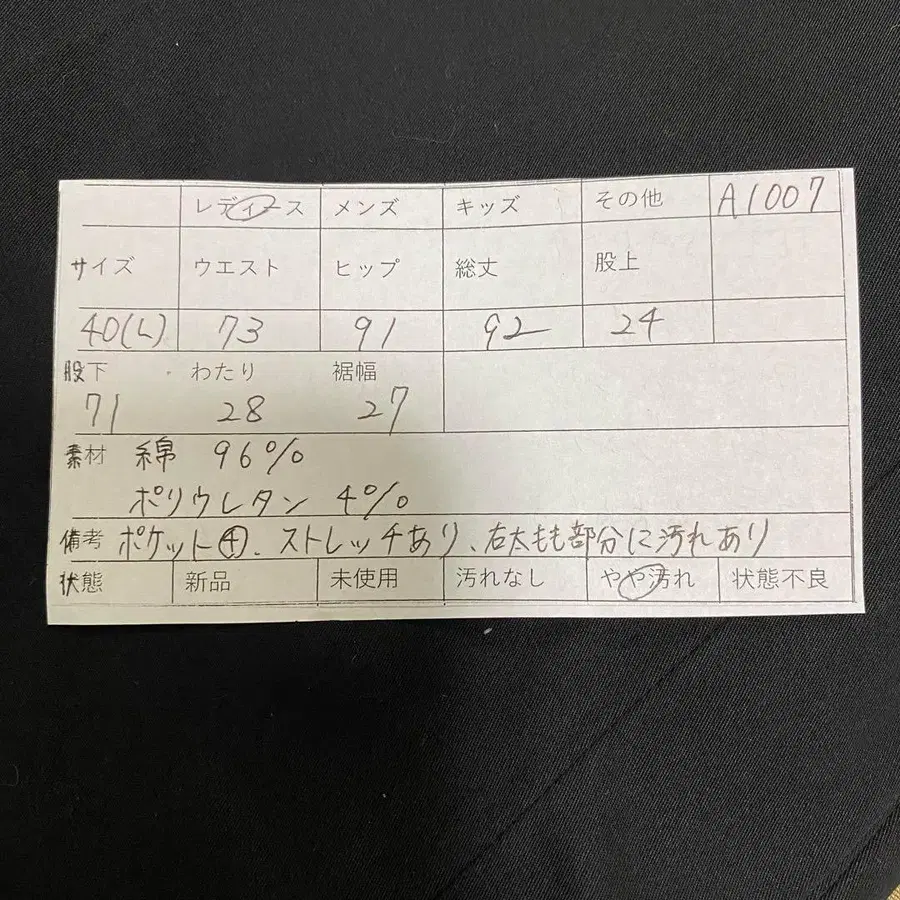 レディース メンズ キッズ その他 A1007
サイズ ウエスト ヒップ 総丈 股上
40(L) 73 91 92 24
股下 わたり 裾幅
71 28 27
素材 綿 96%
ポリウレタン 4%
備考 ポケット④、ストレッチあり、右太もも部分に汚れあり
状態 新品 未使用 汚れなし やや汚れ 状態不良